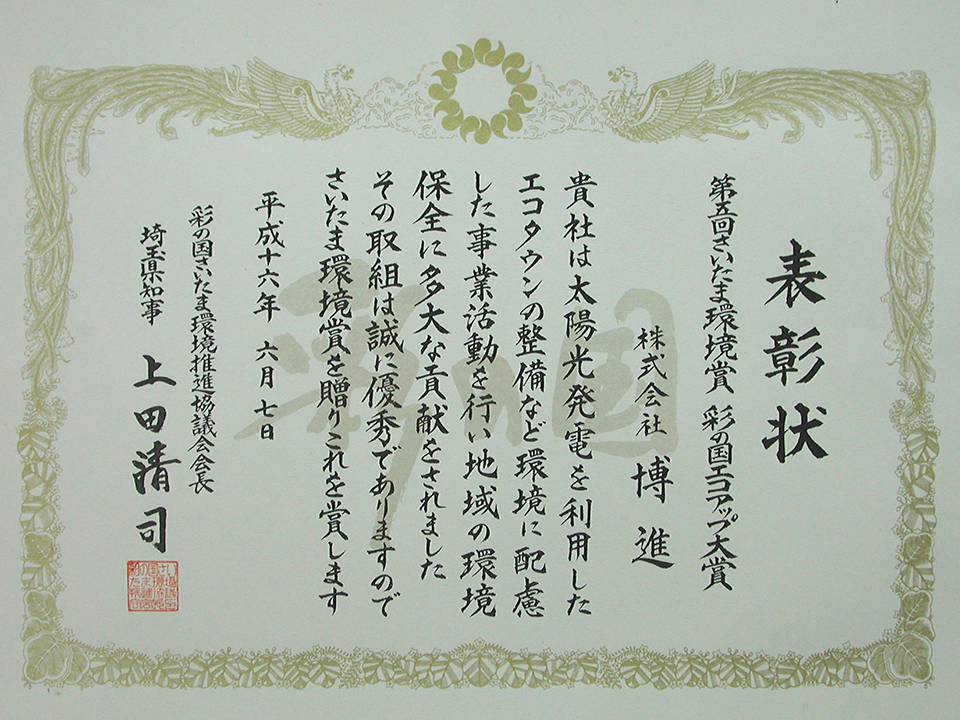 表彰状
第五回さいたま環境賞 彩の国エコアップ大賞
株式会社 博進
貴社は太陽光発電を利用した
エコタウンの整備など環境に配慮
した事業活動を行い地域の環境
保全に多大な貢献をされました
その取組は誠に優秀でありますので
さいたま環境賞を贈りこれを賞します
平成十六年 六月 七日
彩の国さいたま環境推進協議会会長
埼玉県知事 上田清司
彩の国